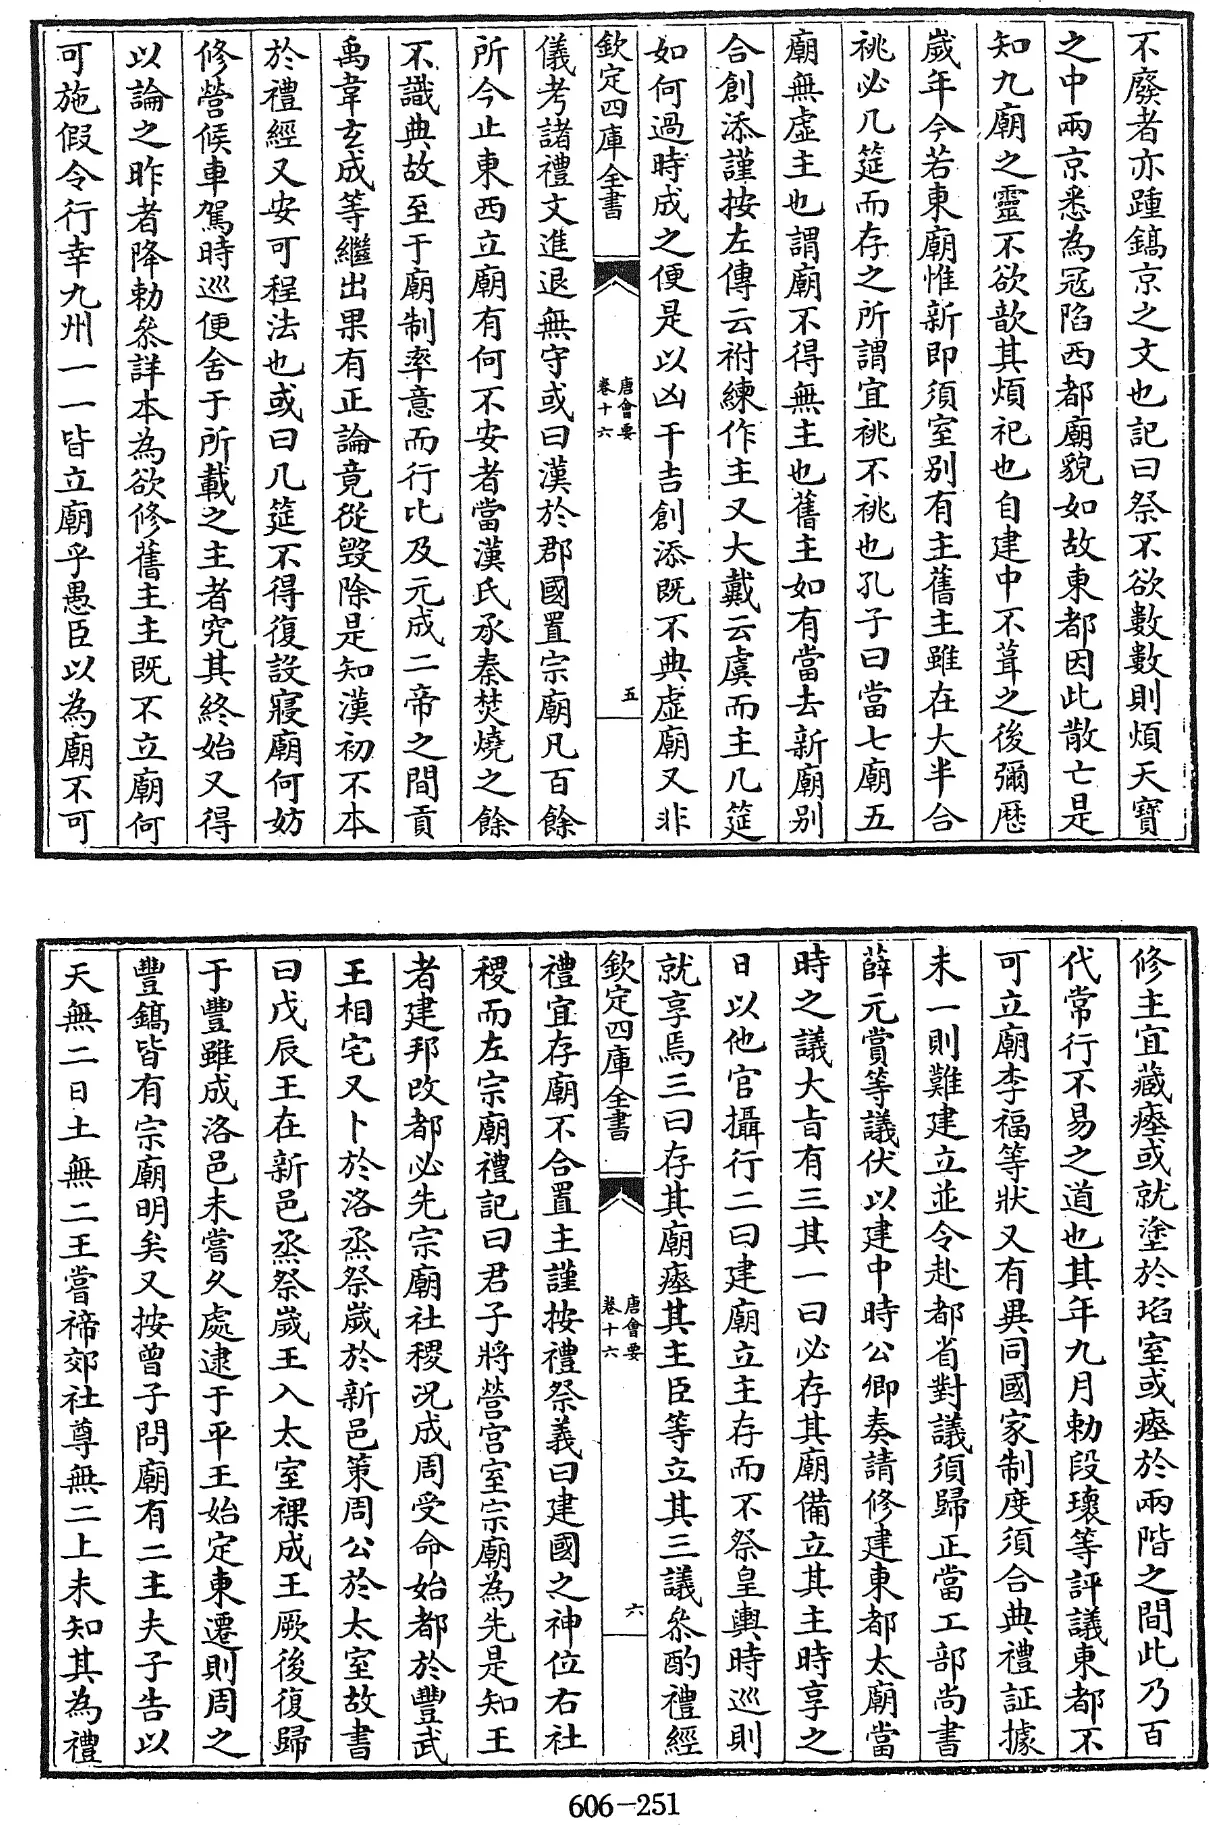 不廢者亦踵鎬京之文也記曰祭不欲數數則煩天寶
之中兩京悉為冦陷西都廟貌如故東都因此散亡是
知九廟之靈不欲歆其煩祀也自建中不葺之後彌厯
嵗年今若東廟惟新即須室别有主舊主雖在大半合
祧必几筵而存之所謂宜祧不祧也孔子曰當七廟五
廟無虛主也謂廟不得無主也舊主如有當去新廟别
合創添謹按左傳云祔練作主又大戴云虞而主几筵
如何過時成之便是以凶干吉創添既不典虛廟又非
欽定四庫全書
唐會要
卷十六
五
儀考諸禮文進退無守或曰漢於郡國置宗廟凡百餘
所今止東西立廟有何不安者當漢氏承秦焚燒之餘
不識典故至于廟制率意而行比及元成二帝之間貢
禹韋玄成等繼出果有正論竟從毁除是知漢初不本
於禮經又安可程法也或曰几筵不得復設寢廟何妨
修營候車駕時巡便舍于所載之主者究其終始又得
以論之昨者降勅叅詳本為欲修舊主主既不立廟何
可施假令行幸九州一一皆立廟乎愚臣以為廟不可
修主宜藏瘞或就塗於埳室或瘞於兩階之間此乃百
代常行不易之道也其年九月勅段瓌等評議東都不
可立廟李福等狀又有異同國家制度須合典禮証據
未一則難建立並令赴都省對議須歸正當工部尚書
薛元賞等議伏以建中時公卿奏請修建東都太廟當
時之議大旨有三其一曰必存其廟備立其主時享之
日以他官攝行二曰建廟立主存而不祭皇輿時巡則
就享焉三曰存其廟瘞其主臣等立其三議叅酌禮經
欽定四庫全書
唐會要
卷十六
六
禮宜存廟不合置主謹按禮祭義曰建國之神位右社
稷而左宗廟禮記曰君子將營宫室宗廟為先是知王
者建邦改都必先宗廟社稷况成周受命始都於豐武
王相宅又卜於洛烝祭嵗於新邑策周公於太室故書
曰戊辰王在新邑烝祭嵗王入太室祼成王厥後復歸
于豐雖成洛邑未嘗久處逮于平王始定東遷則周之
豐鎬皆有宗廟明矣又按曾子問廟有二主夫子告以
天無二日土無二王嘗禘郊社尊無二上未知其為禮
606-251